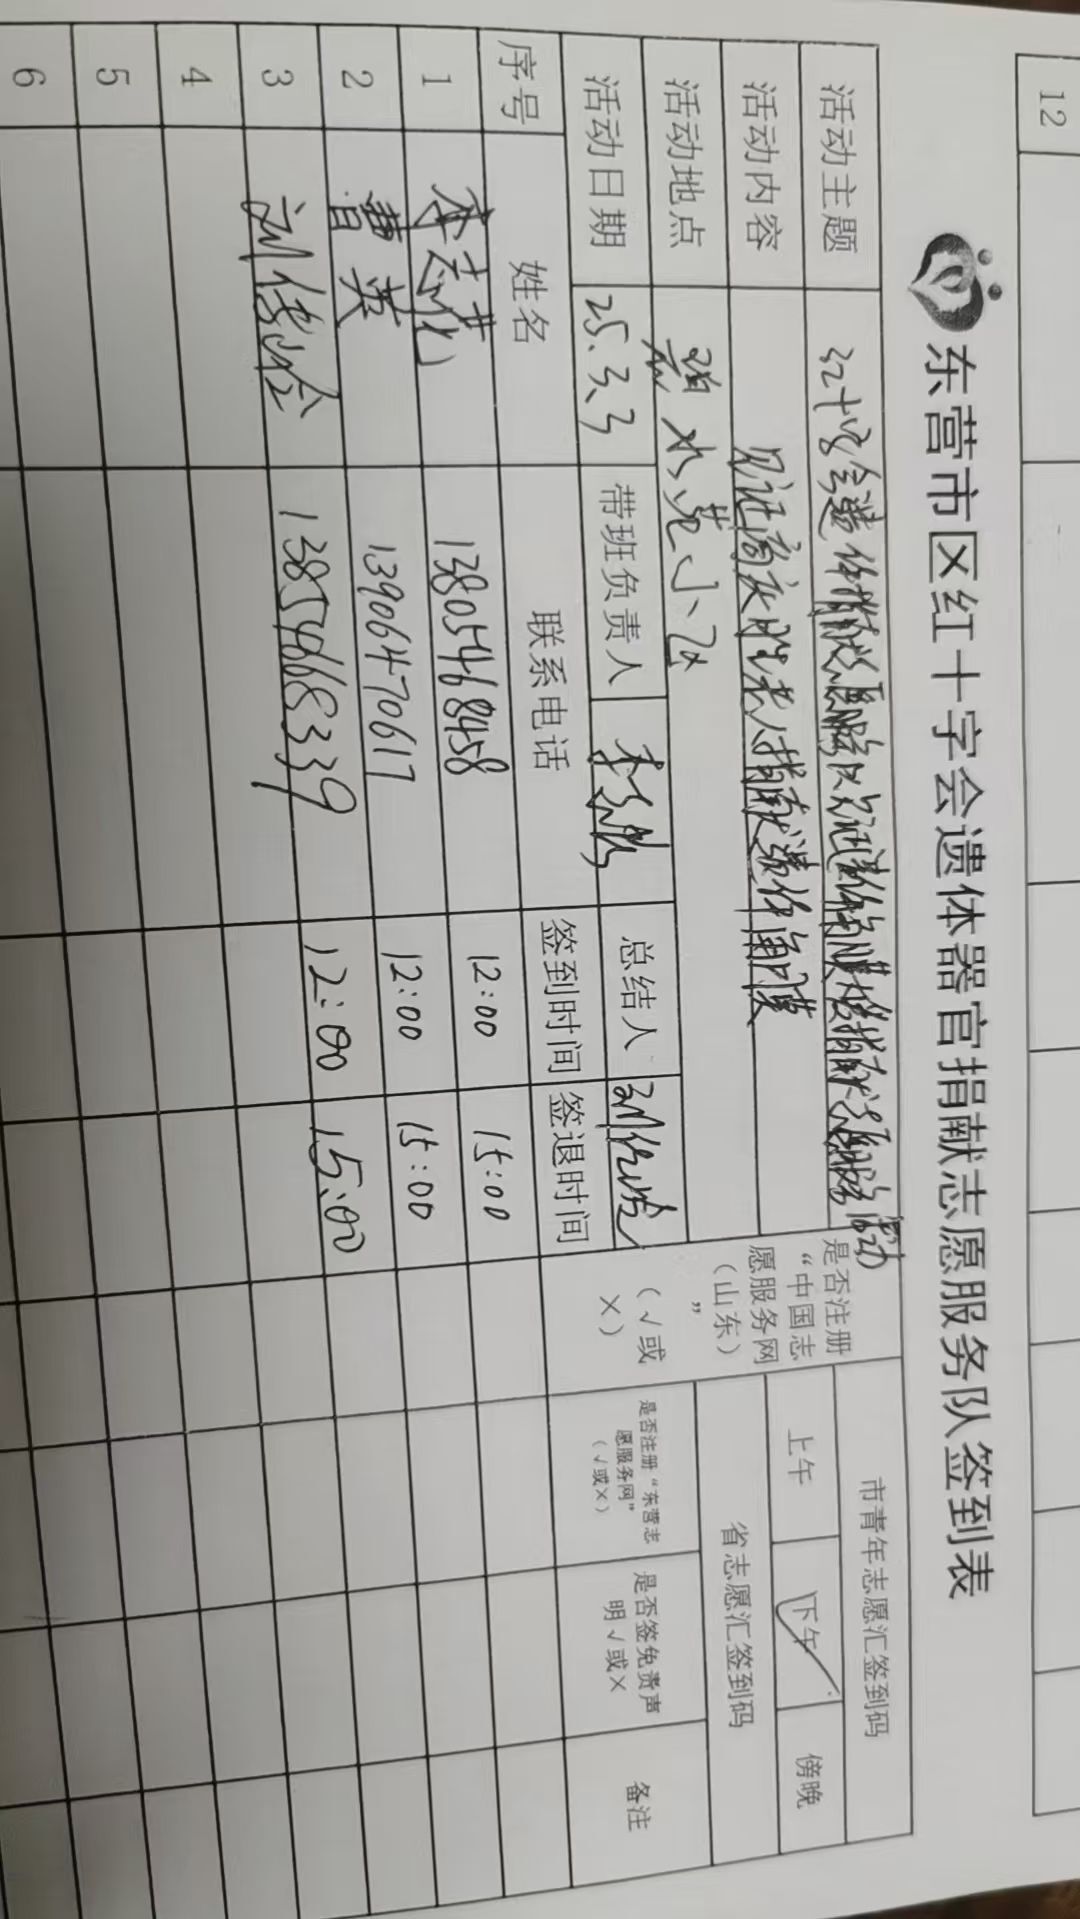 12
东营市区红十字会遗体器官捐献志愿服务队签到表
活动主题 红十字会遗体捐献志愿服务队见证遗体角膜捐献志愿服务活动
活动内容 见证 老人捐献遗体角膜
活动地点 水苑小区
活动日期 25.3.3 带班负责人 总结人
是否注册“中国志愿服务网（山东）”（√或×）
市青年志愿汇签到码
上午 下午 傍晚
省志愿汇签到码
序号 姓名 联系电话 签到时间 签退时间 是否注册“东营志愿服务网”（√或×） 是否签免责声明√或× 备注
1 13805468458 12:00 15:00
2 曹英 13906470617 12:00 15:00
3 刘 13854668339 12:00 15:00
4
5
6